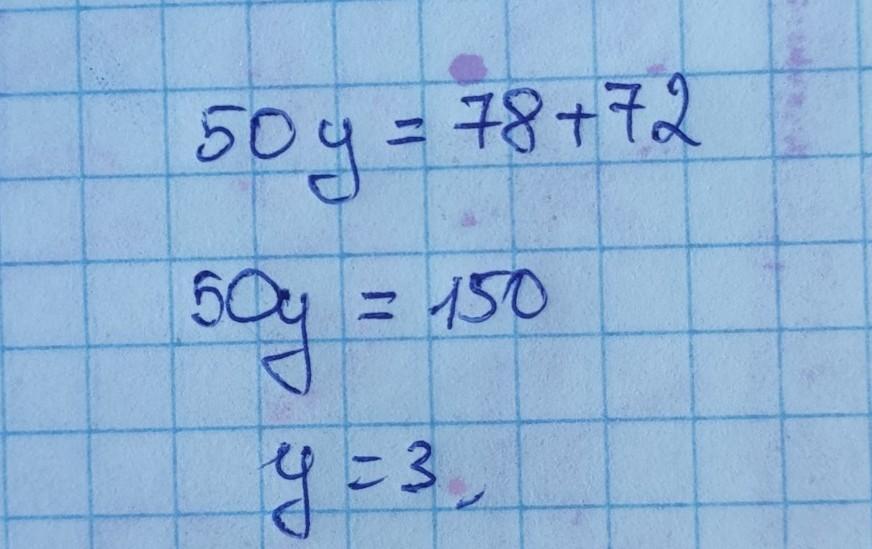 50y = 78+72
50y = 150
y = 3,